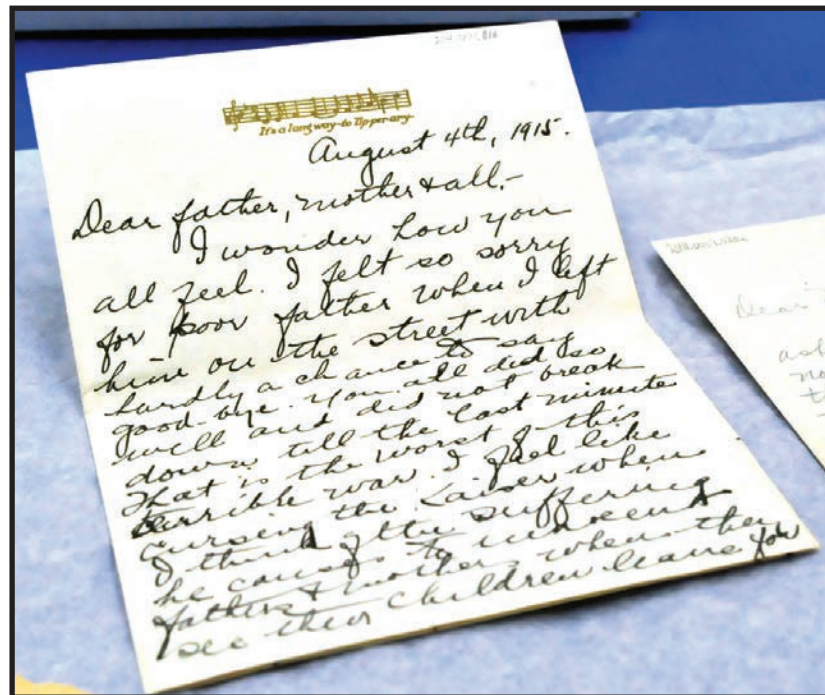 It's a long way to Tipperary
August 4th, 1915.
Dear father, mother & all,-
I wonder how you
all feel. I felt so sorry
for poor father when I left
him on the street with
hardly a chance to say
good-bye. You all did so
well and did not break
down till the last minute
That is the worst of this
terrible war. I feel like
cursing the Kaiser when
I think of the suffering
he causes to innocent
fathers & mothers when they
see their children leave for
Dear